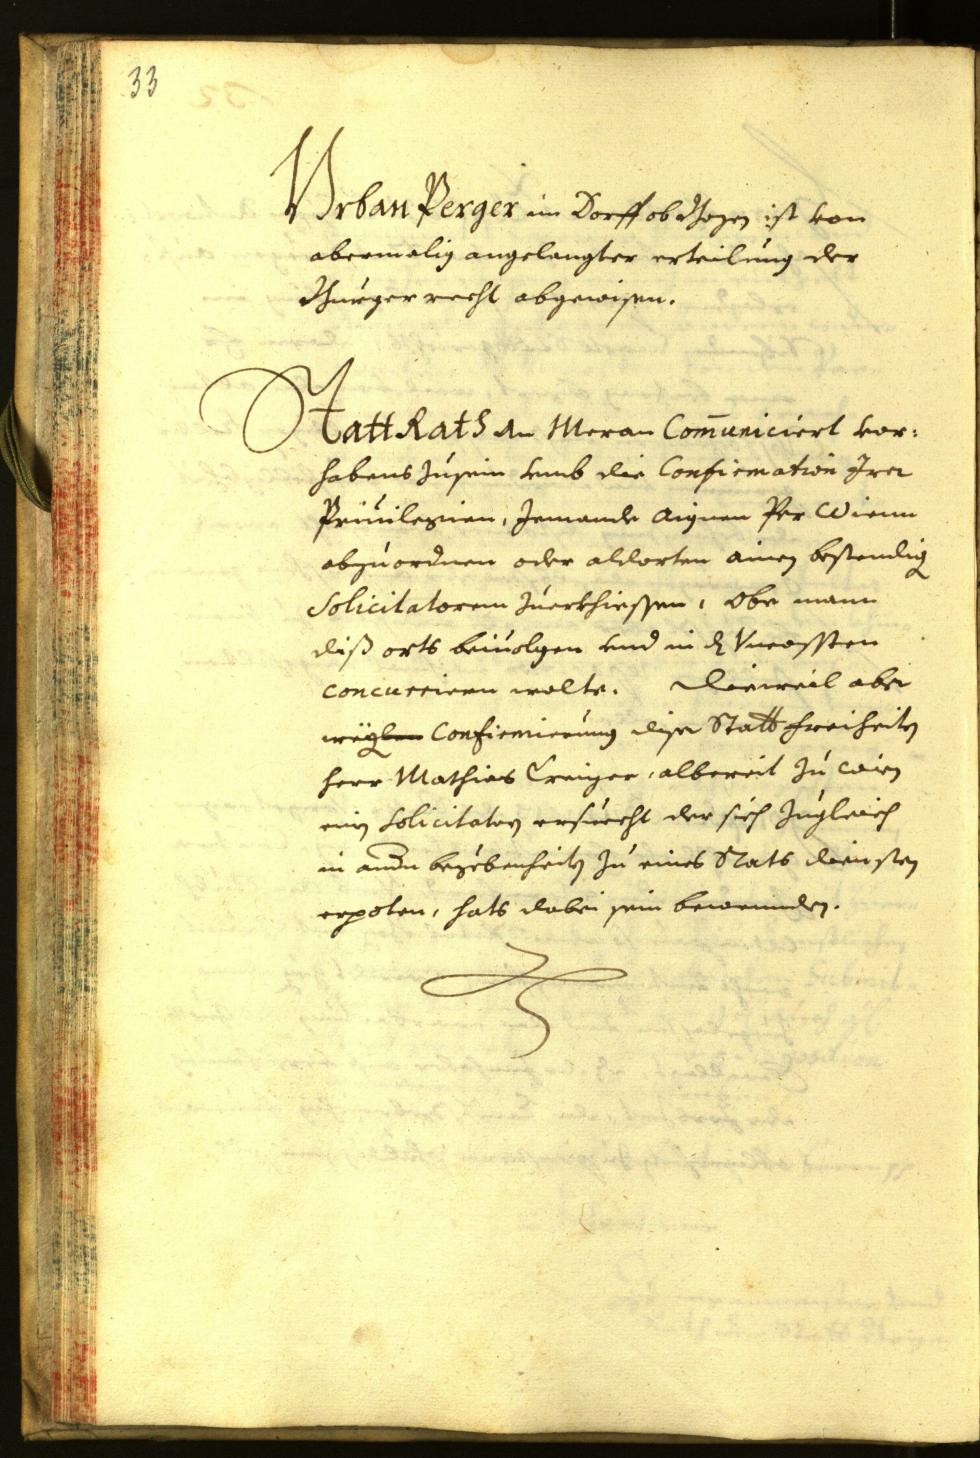 33
Urban Perger im Dorff ob Bozen ist von
abermalig angelangter erteilung der
Burgerrecht abgewisen.
Statt Rath An Meran Communiciert vor:
habens zusein vmb die Confirmation Irer
Priuilegien, Jemande aignen Per Wienn
abzuordnen oder aldorten ainen bestendig
Solicitatorem zuerkhiessen, Obe mann
diß orts beiuolgen vnd in d Vncossten
concurrieren wolte. Dieweil aber
wegen Confirmierung diser Statt freiheiten
herr Mathias Creizer, albereit zu wien
ein Solicitatorn ersuecht der sich zugleich
in andern begebenheiten zu eines Stats diensten
erpoten, hats dabei sein bewenden.